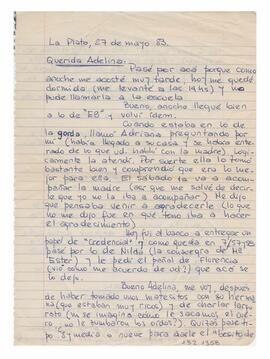 La Plata, 27 de mayo 83.
Querida Adelina:
Pasé por acá porque como
anoche me acosté muy tarde, hoy me quedé
dormida (me levanté a las 14hs) y no
pude llamarla a la escuela
Bueno, anoche llegué bien
a lo de "EB" y volví ídem.
Cuando estaba en lo de
la gorda, llamó Adriana preguntando por
mí (había llegado a su casa y se había ente-
rado de lo que ud. habló con la madre) lógi-
camente la atendí. Por suerte ella lo tomó
bastante bien y comprendió que era lo me-
jor para ella. El sábado la va a acom-
pañar la madre (así que me salvé de decir-
le que yo no la iba a acompañar) Me dijo
que pensaba venir a agradecerle (lo que
no me dijo fue en qué tono iba a hacer
el agradecimiento)
Hoy fui al banco a entregar un
papel de "Credencial" y como queda en
pasé por lo de Nilda (la consuegra de Mª
Ester) y le pedí el pañal de Florencia
(vio como me acuerdo de ud?) que acá se
lo dejo.
Bueno Adelina, me voy, después
de haber tomado unos matecitos con su herma-
na (que estaban muy ricos) y de charlar
(ni se imagina como le sacamos el cue-
ro, ¿no le zumbaron los oídos?) Quizás pase tipo
5 y media o nueve para darle el "besito de